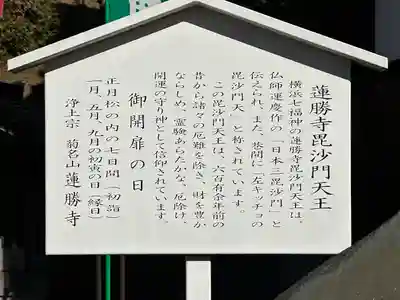 蓮勝寺毘沙門天王
横浜七福神の蓮勝寺毘沙門天王は、
仏師運慶作の「日本三毘沙門」と
伝えられ、また、巷間に「左キッチョの
毘沙門天」と称されています。
この毘沙門天王は、六百有余年前の
昔から諸々の厄難を除き、財を豊か
ならしめ、霊験あらたかな、厄除け、
開運の守り神として信仰されています。
御開扉の日
正月松の内の七日間(初詣)
一月、五月、九月の初寅の日(縁日)
浄土宗 菊名山 蓮勝寺